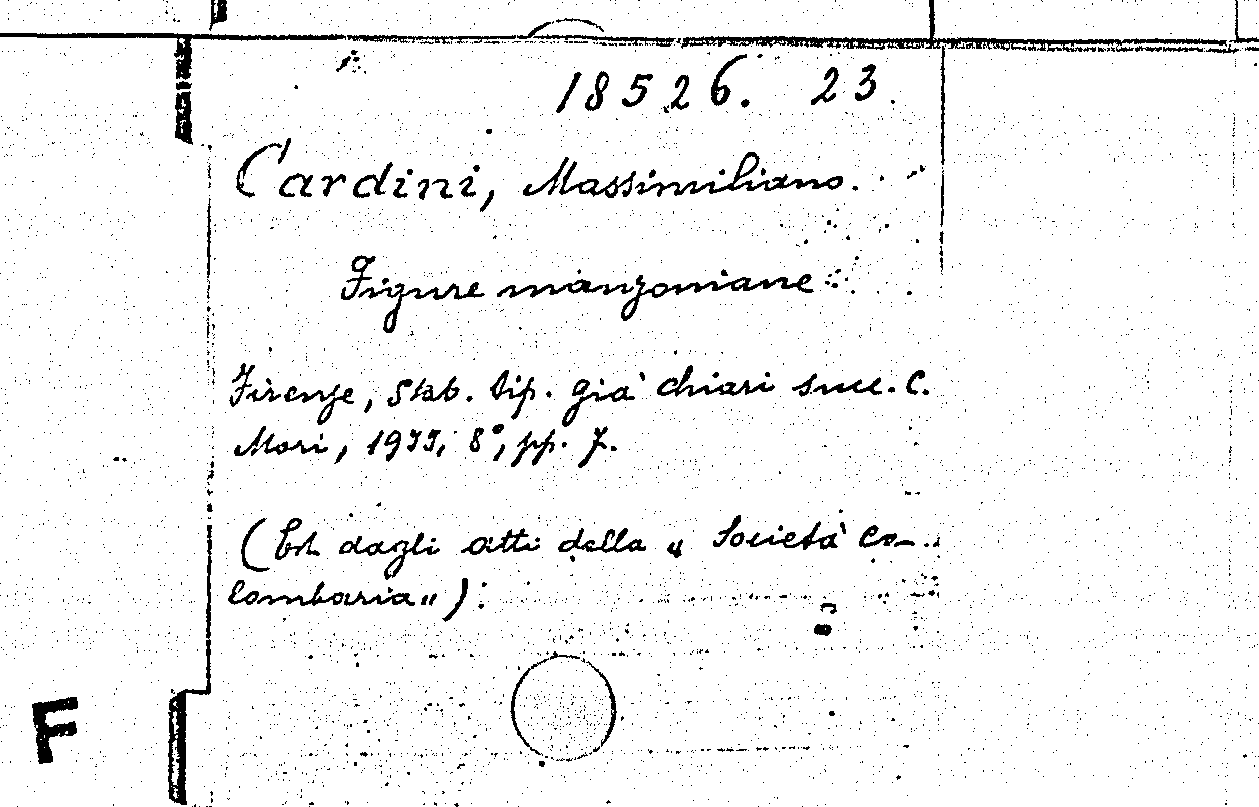 18526. 23.
Cardini, Massimiliano.
Figure manzoniane
Firenze, Stab. tip. già chiari succ. C.
Mori, 1933, 8°, pp. 7.
(Est. dagli atti della „ Società Co-
lombaria„).
F